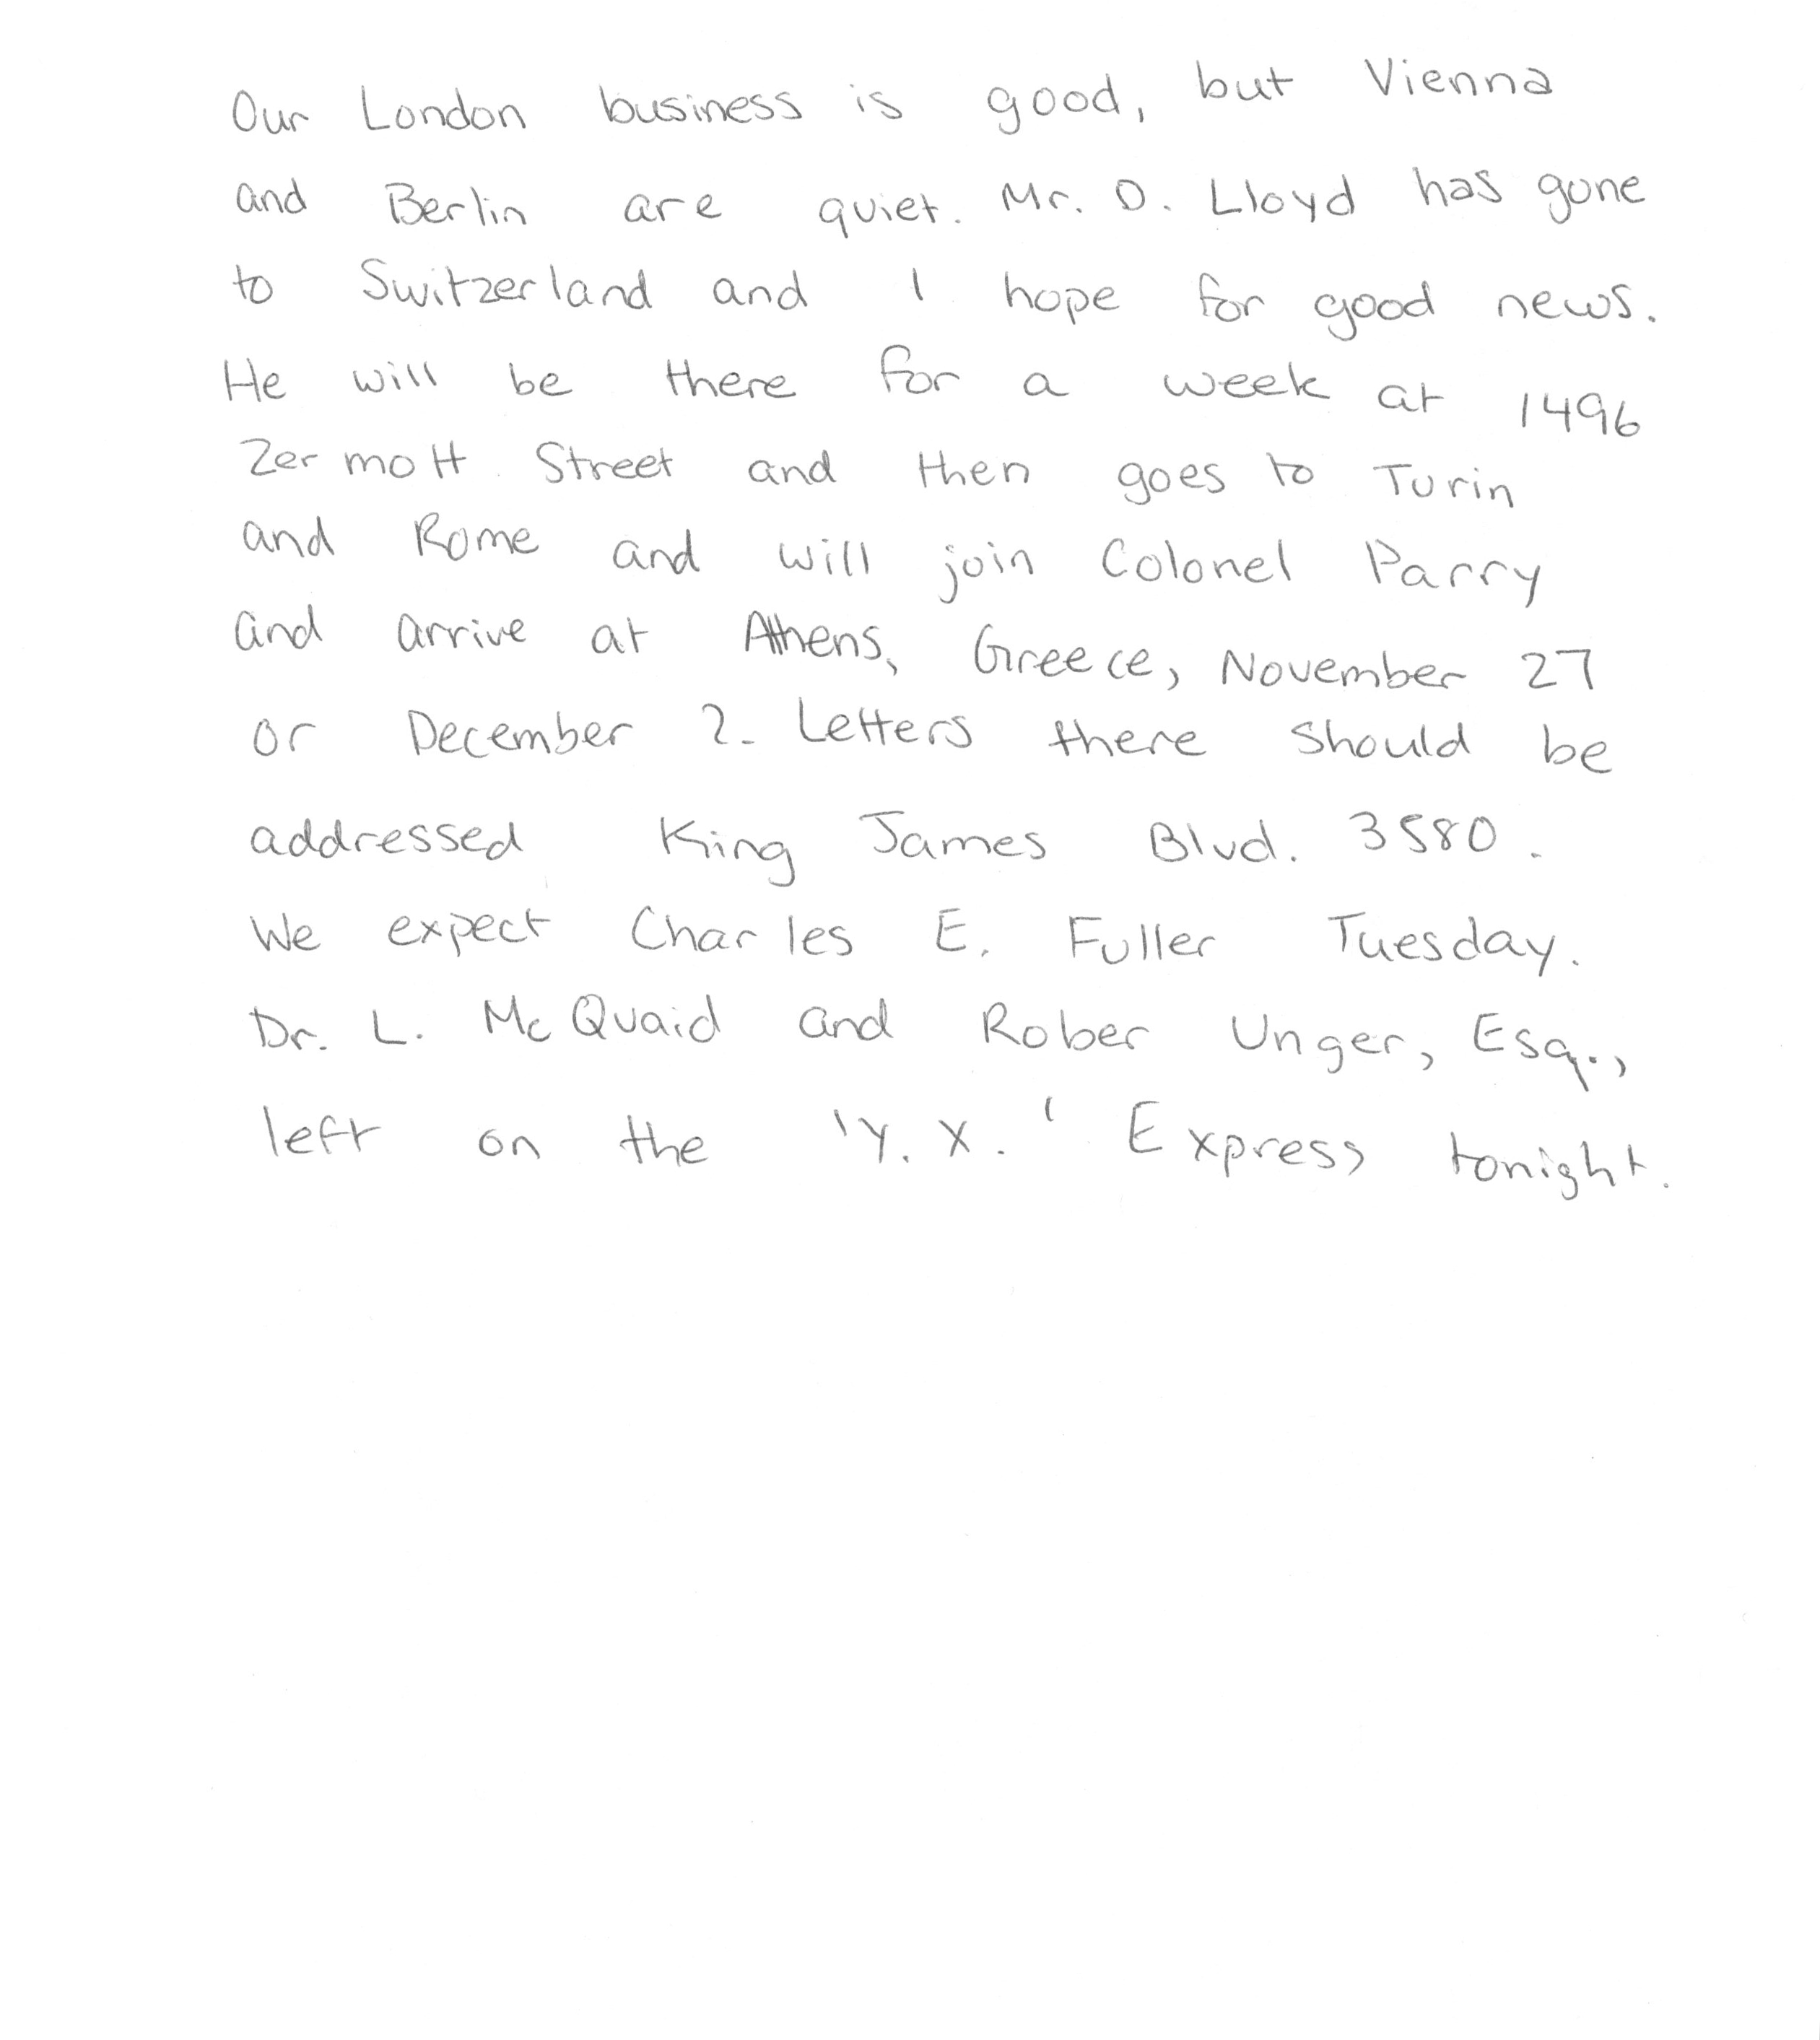 Our London business is good, but Vienna
and Berlin are quiet. Mr. D. Lloyd has gone
to Switzerland and I hope for good news.
He will be there for a week at 1496
Zermott Street and then goes to Turin
and Rome and will join Colonel Parry
and arrive at Athens, Greece, November 27
or December 2. Letters there should be
addressed King James Blvd. 3580.
We expect Charles E. Fuller Tuesday.
Dr. L. McQuaid and Rober Unger, Esq.,
left on the 'Y. X.' Express tonight.